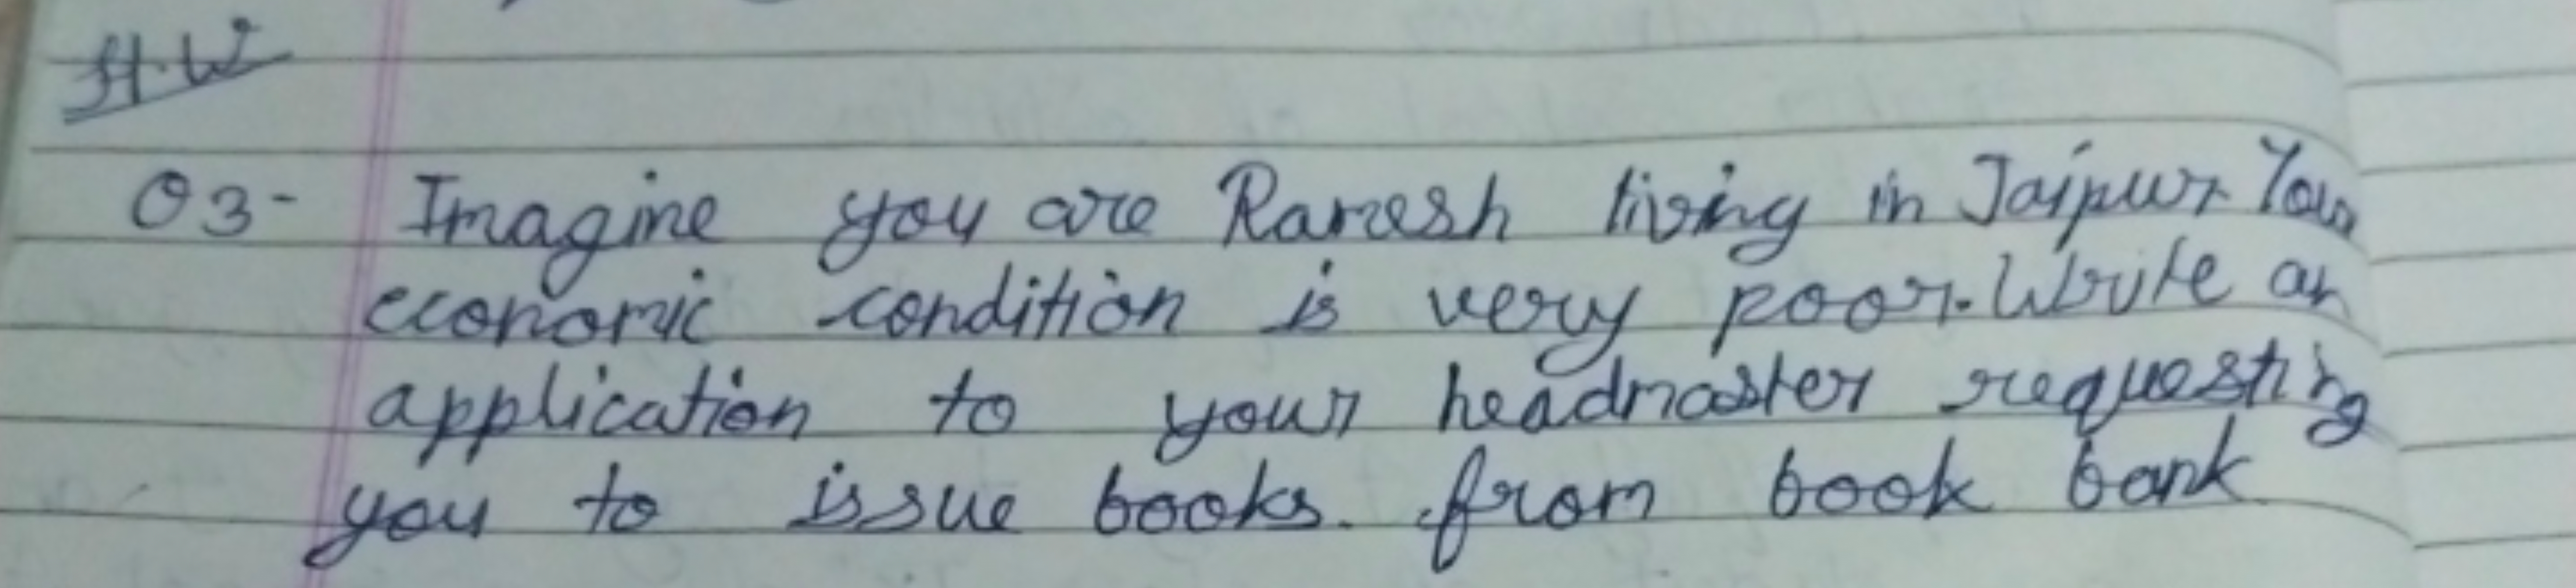 H.W
Q3- Imagine you are Ramesh living in Jaipur. Your
economic condition is very poor. Write an
application to your headmaster requesting
you to issue books. from book bank